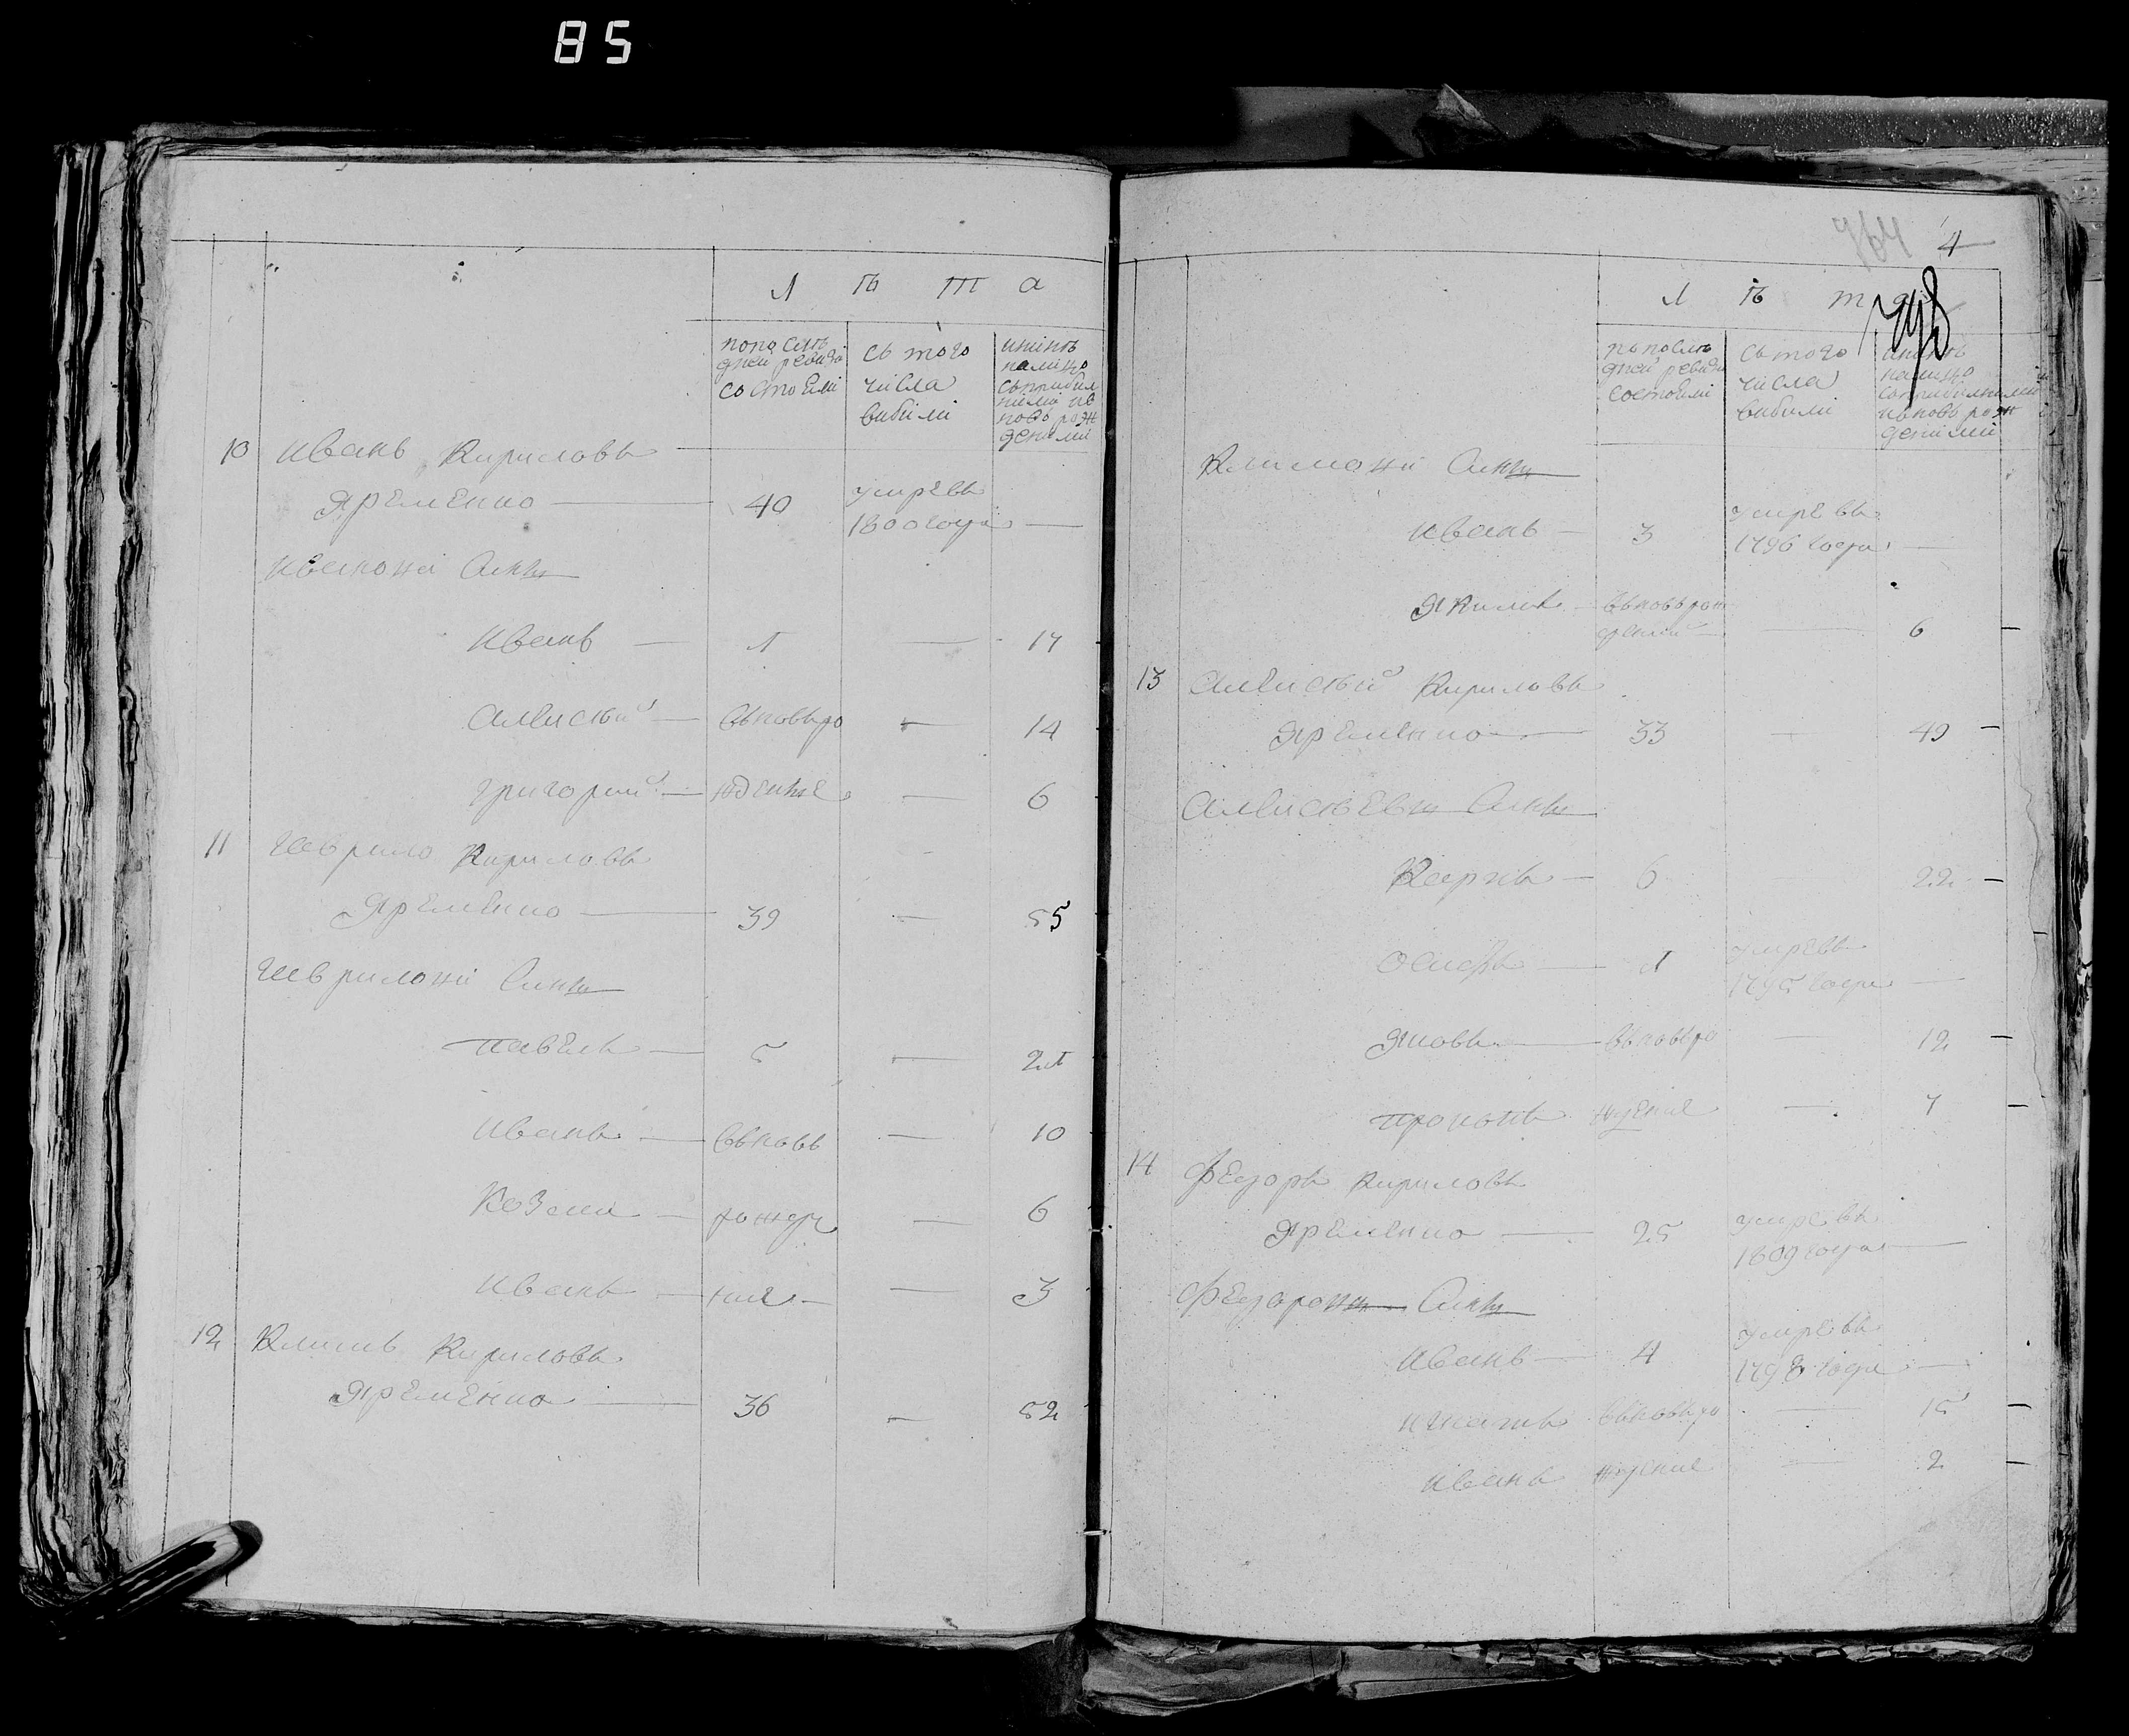 85
Л Ѣ т а
по посль
дней ревизіи
состояли
съ того
числа
вибили
нинѣ
налицо
10 Иванъ Кириловъ
Яременко — 40 умревъ
1800 года —
Ивановы Сины
Иванъ — 1 — 17
Алексѣй — вьновь ро — 14
Григорий — жденые — 6
11 Гаврило Кириловъ
Яременко — 39 — 55
Гаврилови Сины
Павелъ — 5 — 21
Иванъ — вьновь — 10
Козма — рожде — 6
Иванъ — ние — 3
12 Климъ Кириловъ
Яременко — 36 — 52
764 4
748
Л Ѣ т а
по посль
дней ревизіи
состояли
съ того
числа
вибили
нинѣ
налицо
Климови Сины
Иванъ — 3 умревъ
1796 года —
Якимъ — вьновь рож
дений — — 6
13 Алексѣй Кириловъ
Яременко — 33 — 49
Алексѣевы Сины
Карпъ — 6 — 22
Осипъ — 1 умревъ
1795 года —
Яковъ — вьновь ро — 12
Прокопъ ждение — 7
14 Федоръ Кириловъ
Яременко — 25 умревъ
1809 года —
Федоровы Сины
Иванъ — 4 умревъ
1798 года —
Игнатъ вьновь ро — 15
Иванъ ждение — 2